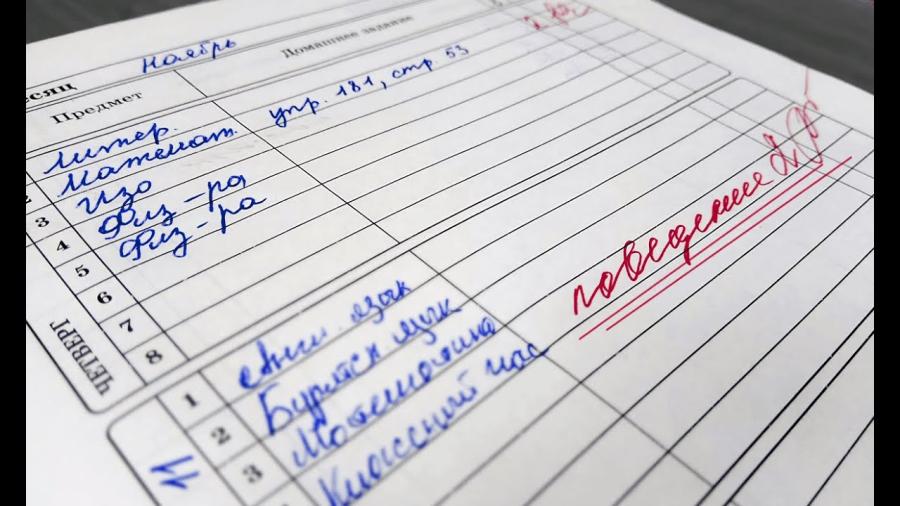 есяц ноябрь
Предмет Домашнее задание
литер.
Математ. упр. 181, стр. 53
3 Изо
4 Физ-ра
5 Физ-ра
6
7
8
ЧЕТВЕРГ
поведение
1 Англ. язык
2 Бурятск язык
3 Математика
Классный час
11